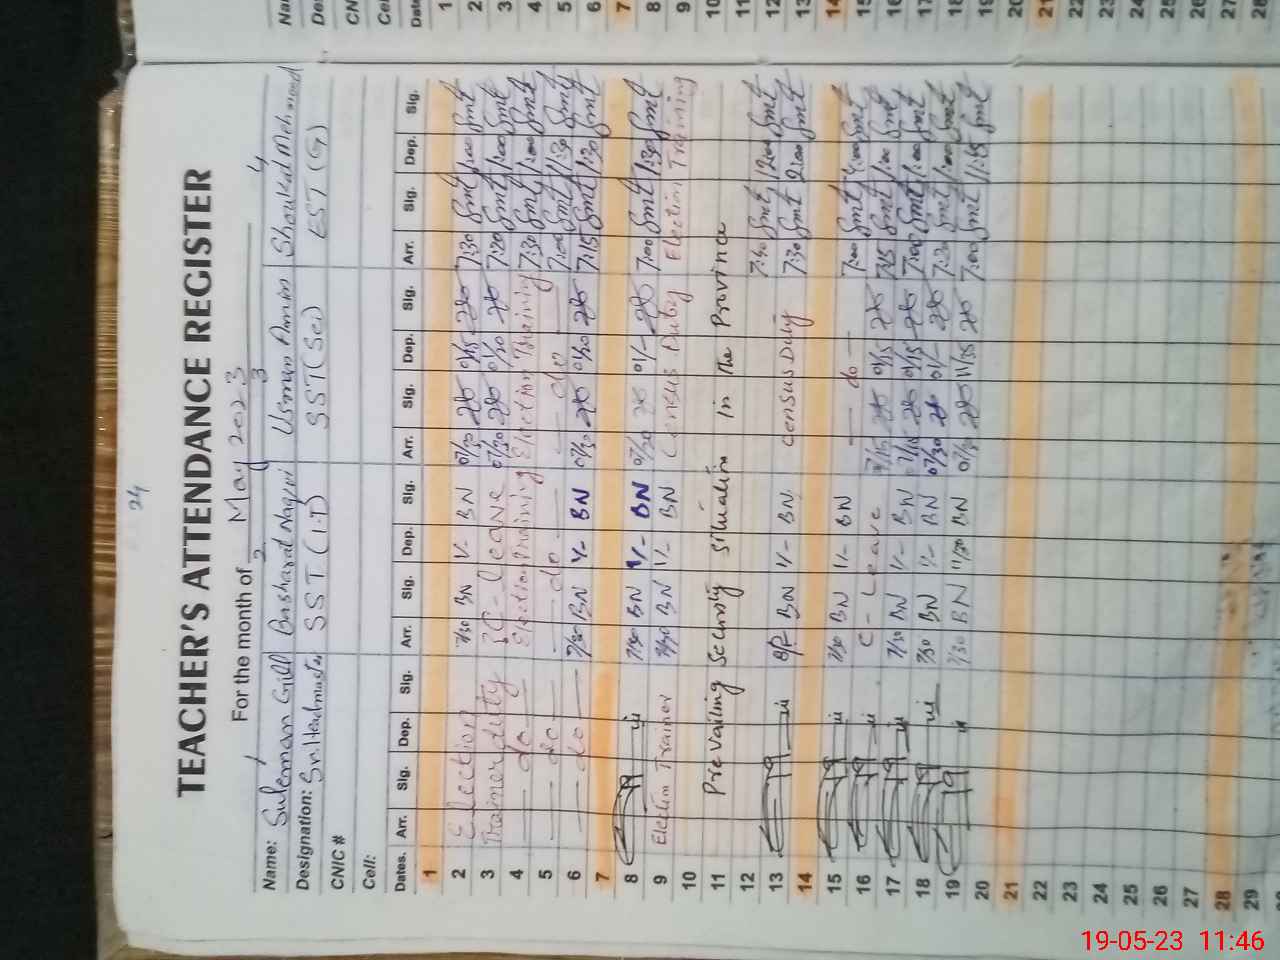 24
TEACHER'S ATTENDANCE REGISTER
For the month of May 2023
1 2 3 4
Name: Suleman Gill Basharat Naqvi Usman Amin Shoukat Mehmood
Designation: Sr. Headmaster SST (I.T) SST (Sci) EST (G)
CNIC #
Cell:
Dates. Arr. Sig. Dep. Sig. Arr. Sig. Dep. Sig. Arr. Sig. Dep. Sig. Arr. Sig. Dep. Sig.
1
2 Election 7/30 BN 1/- BN 07/30 01/15 7:30 Smt 1:00 Smt
3 Trainer duty C-Leave 07/30 01/30 7:20 Smt 1:00 Smt
4 — do — Election Training Election Training 7:30 Smt 1:00 Smt
5 — do — — do — — do — 7:00 Smt 1:30 Smt
6 — do — 7/30 BN 1/- BN 07/30 01/30 7:15 Smt 1:30 Smt
7
8 7/30 BN 1/- BN 07/30 01/- 7:00 Smt 1:30 Smt
9 Election Trainer 7/30 BN 1/- BN Census Duty Election Training
10
11 Prevailing Security Situation In the Province
12 7:30 Smt 12:00 Smt
13 BN 1/- BN Census Duty 7:30 Smt 2:00 Smt
14
15 7/30 BN 1/- BN — do — 7:00 Smt 4:00 Smt
16 C-Leave 7/15 01/15 7:15 Smt 1:00 Smt
17 7/30 BN 1/- BN 07/15 01/15 7:00 Smt 1:00 Smt
18 7/30 BN 1/- BN 07/30 01/- 7:20 Smt 1:00 Smt
19 7/30 BN 11/30 BN 07/30 11/35 7:00 Smt 11:45 Smt
20
21
22
23
24
25
26
27
28
29
Dates
1
2
3
4
5
6
7
8
9
10
11
12
13
14
15
16
17
18
19
20
21
22
23
24
25
26
27
28
19-05-23 11:46